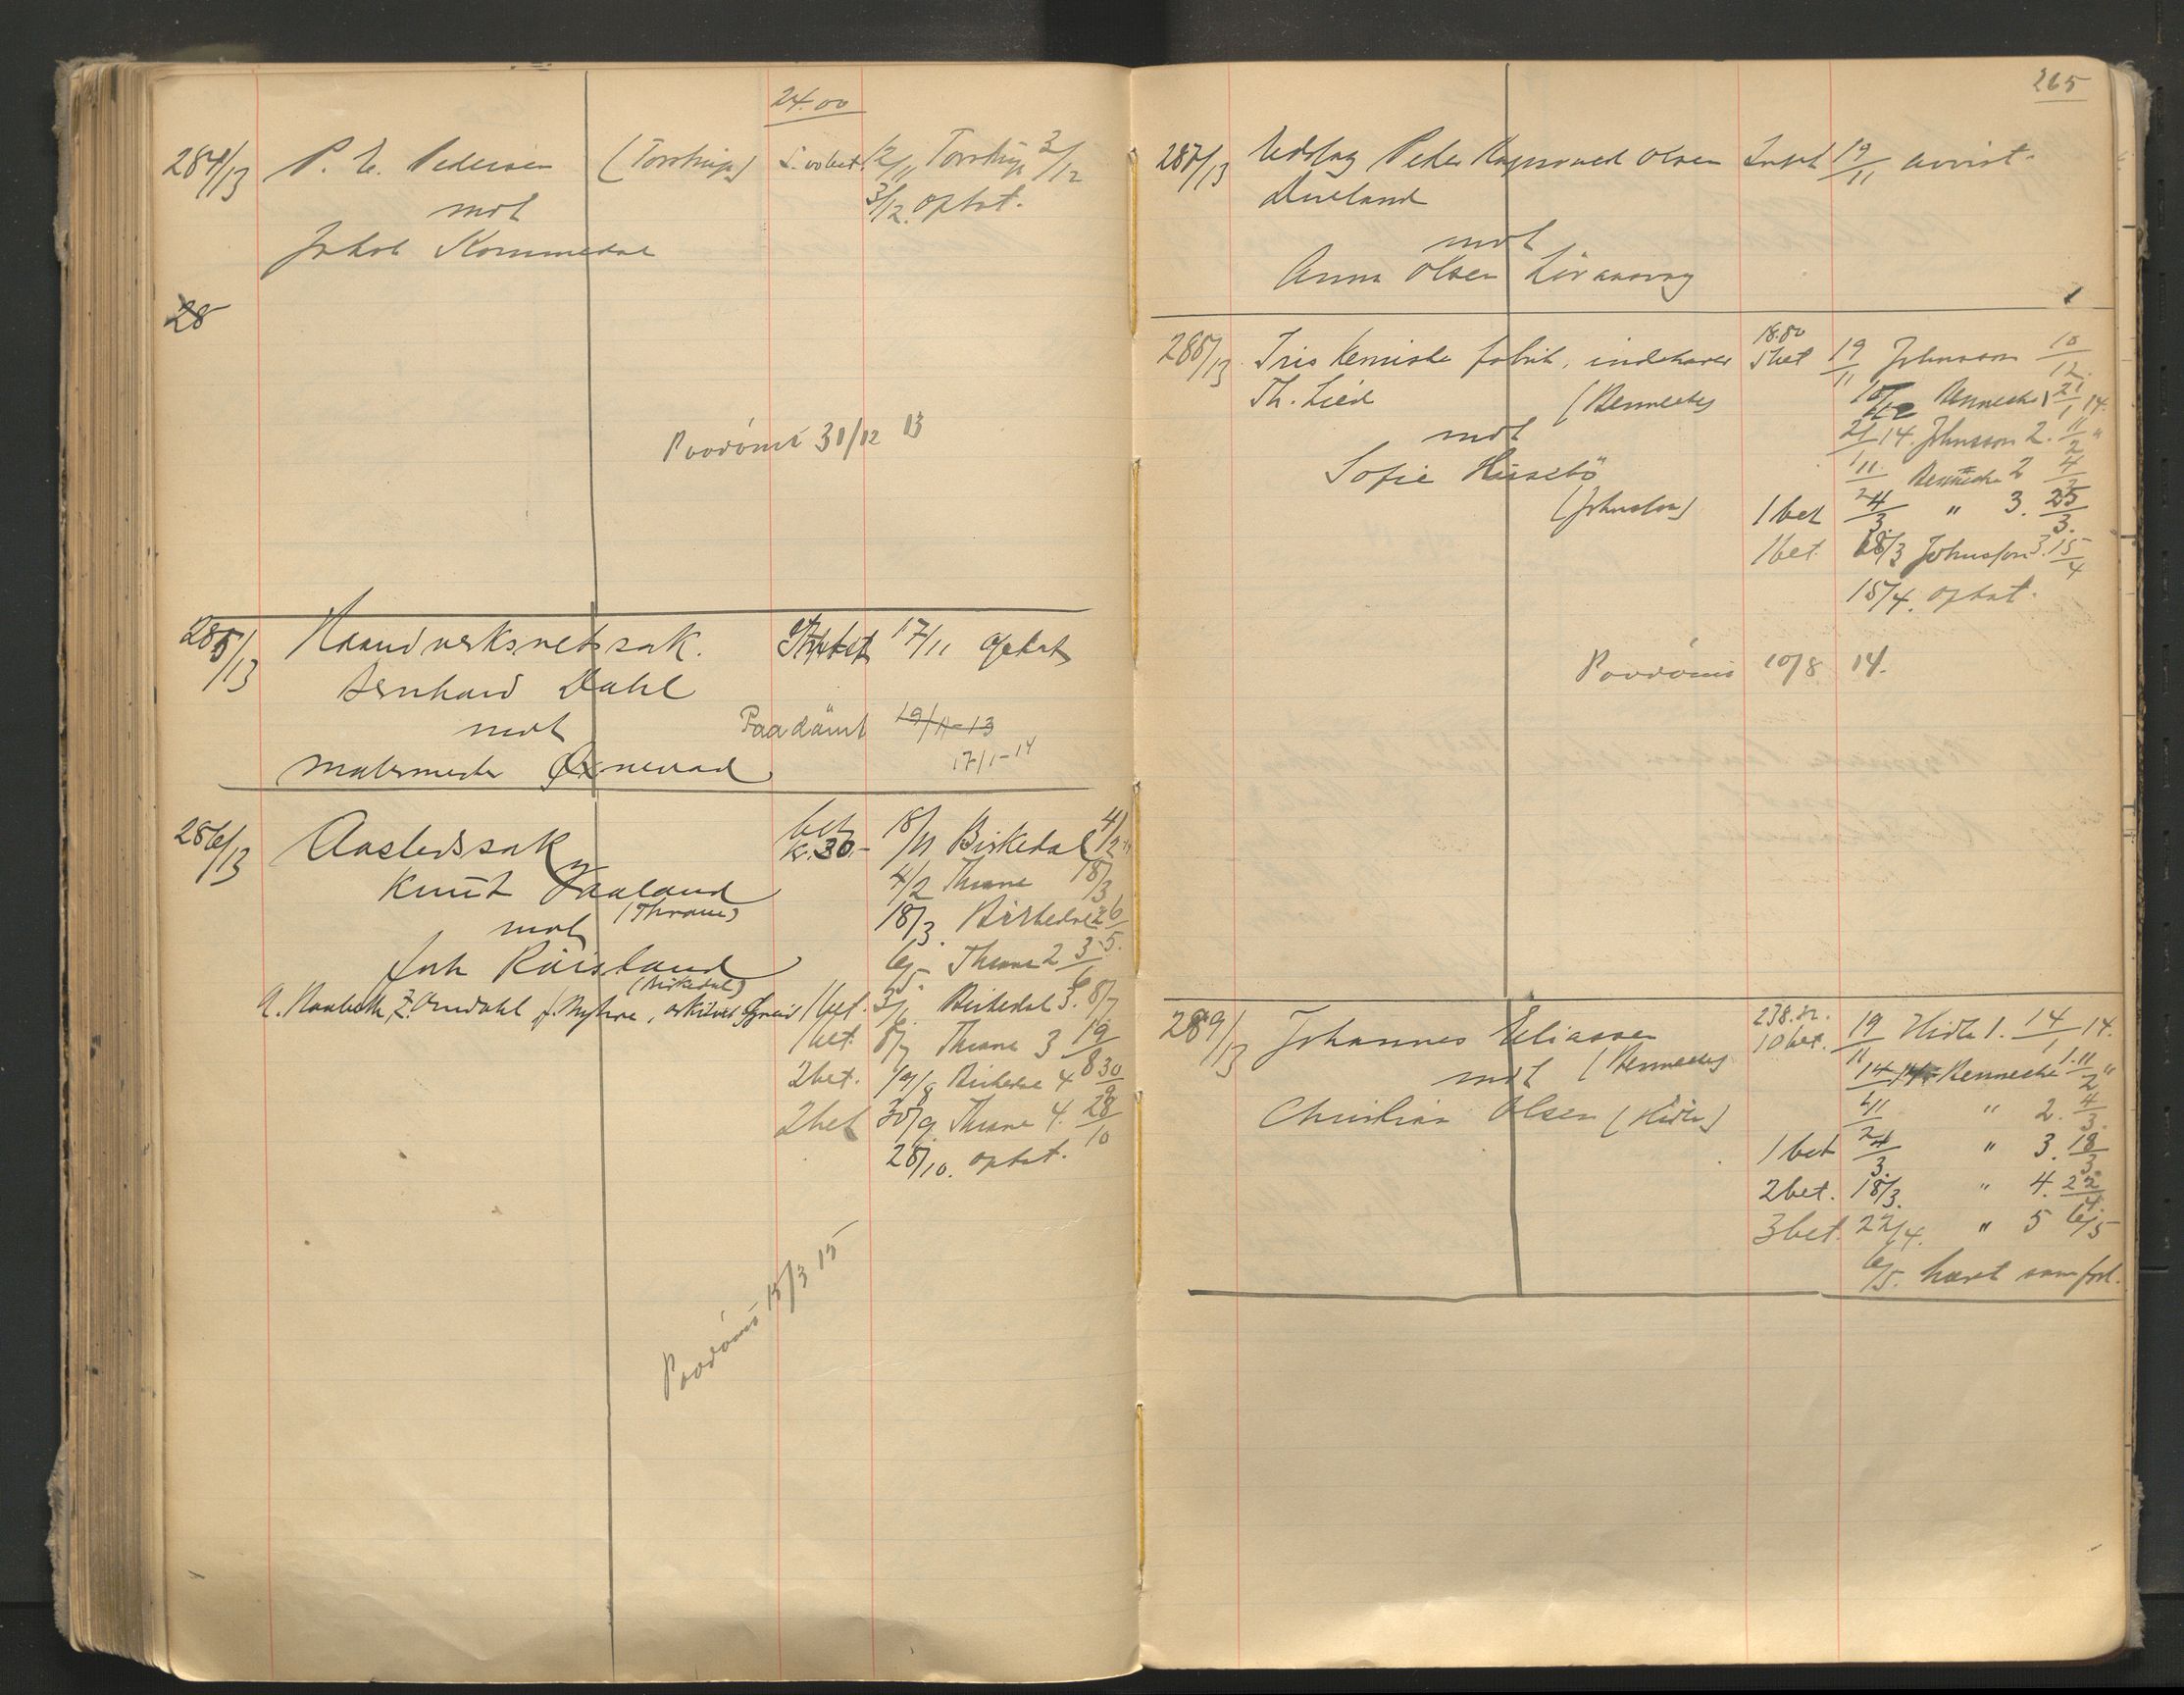 24.00
284/13 P. E. Pedersen (Torstrup) 12/11 Torstrup 3/12
mot 3/12. optat.
Jakob Kommedal
28
Paadömt 31/12 13
285/13 Haandverksretssak. 17/11 optat
Bernhard Dahl
mot Paadömt 19/11-13
malermester Øxnevad 17/1-14
286/13 Aastedssak bet kr. 30.- 18/11 Birkedal 4/2
Knut Vaaland 4/2 Thrane 18/3
(Thrane)
mot 18/3. Birkedal 2 6/5.
Joh Røisland 6/5 Thrane 2 3/6
(Birkedal)
1 bet. 3/6. Birkedal 3. 8/7
1 bet. 8/7 Thrane 3 19/8
2 bet. 19/8 Birkedal 4 30/9
2 bet 30/9. Thrane 4. 28/10
28/10. optat.
Paadömt 13/3 15
265
287/13 Utkast Peder Ragnvald Olsen 19/11 avvist.
mot
Anna Olsen
288/13 Iris kemiske fabrik, indehaver 18.80 5 bet 19/11 Johnsson 10/12.
Th. Lied (Benneche) 10/12 Benneche 1 21/1 14.
mot 21/1 14. Johnsson 2. 11/2 "
Sofie Husebö 11/2 Benneche 2 4/3
(Johnsson) 1 bet 4/3. " 3. 25/3.
1 bet. Johnsson 3. 15/4
15/4. optat.
Paadömt 10/8 14.
289/13 Johannes Eliassen 10 bet. 19/11 Hidle 1. 14/1 14.
mot (Benneche) 14/1 14. Benneche 1. 11/2 "
Christian Olsen (Hidle) 11/2 " 2. 4/3.
1 bet 4/3. " 3. 18/3.
2 bet. 18/3. " 4. 22/4.
3 bet. 22/4. " 5 6/5
6/5. hævet som forl.